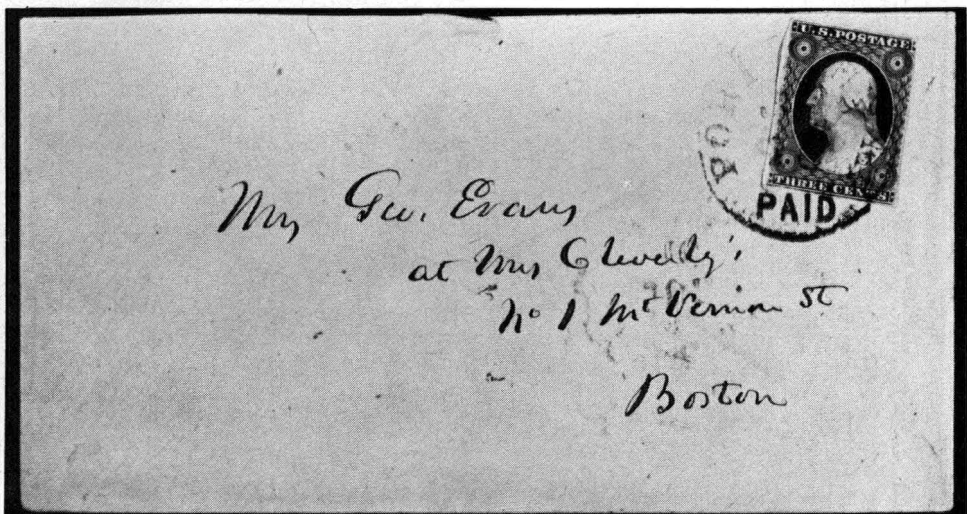 U.S. POSTAGE
THREE CENTS
PAID
Mrs Geo. Evans
at Mrs
No 1 Mt Vernon St
Boston